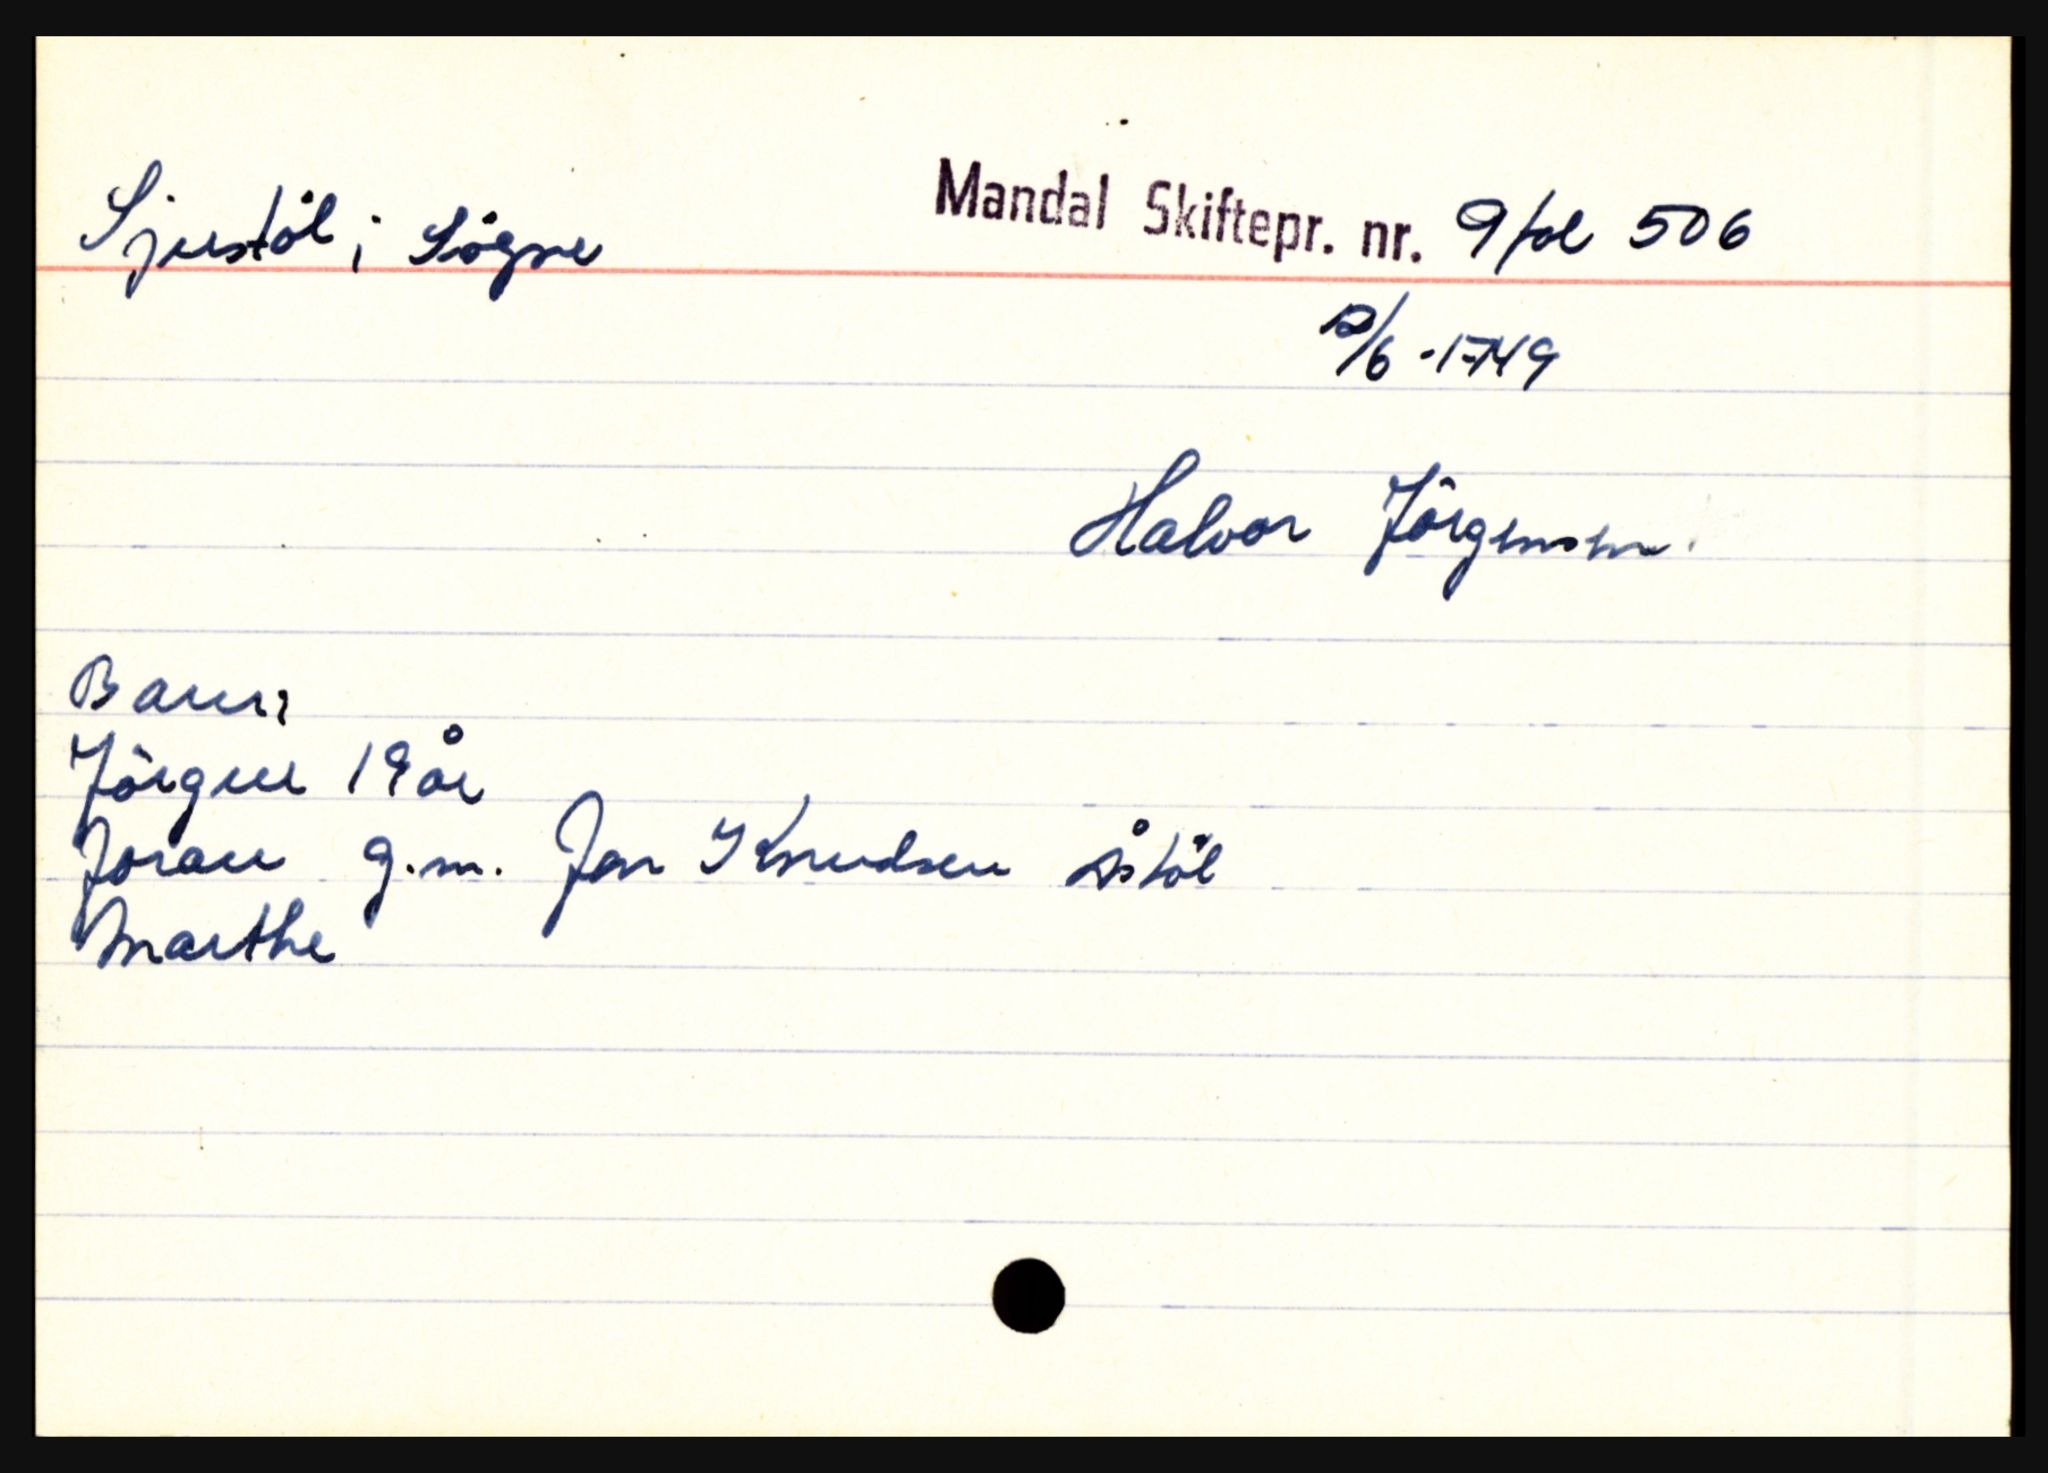 Sjustöl i Sögne Mandal Skiftepr. nr. 9 fol 506
/6 - 1749
Halvor Jörgensen
Barn:
Jörgen 19 år
Joran g.m. Jon Knudsen Åstöl
Marthe